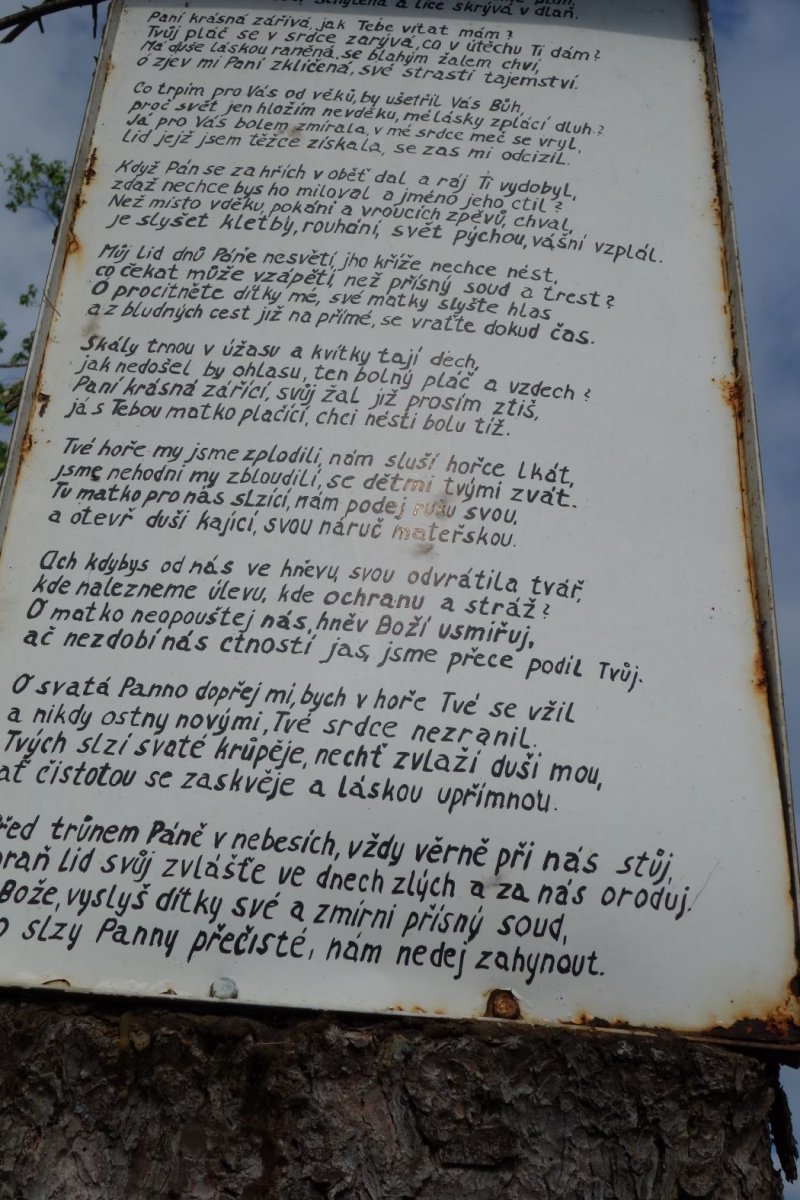 schýlená a líce skrývá v dlaň.
Paní krásná zářivá, jak Tebe vítat mám?
Tvůj pláč se v srdce zarývá, co v útěchu Ti dám?
Má duše láskou raněná, se blahým žalem chví,
ó zjev mi Paní zklíčená, své strasti tajemství.
Co trpím pro Vás od věků, by ušetřil Vás Bůh,
proč svět jen hložím nevděku, mé lásky zplácí dluh?
Já pro Vás bolem zmírala, v mé srdce meč se vryl,
lid jejž jsem těžce získala, se zas mi odcizil.
Když Pán se za hřích v oběť dal a ráj Ti vydobyl,
zdaž nechce bys ho miloval a jméno jeho ctil?
Než místo vděku, pokání a vroucích zpěvů, chval,
je slyšet kletby, rouhání, svět pýchou, vášní vzplál.
Můj lid dnů Páně nesvětí, jho kříže nechce nést,
co čekat může vzápětí, než přísný soud a trest?
Ó procitněte dítky mé, své matky slyšte hlas
a z bludných cest již na přímé, se vraťte dokud čas.
Skály trnou v úžasu a kvítky tají dech,
jak nedošel by ohlasu, ten bolný pláč a vzdech?
Paní krásná zářící, svůj žal již prosím ztiš,
já s Tebou matko plačící, chci nésti bolu tíž.
Tvé hoře my jsme zplodili, nám sluší hořce lkát,
jsme nehodni my zbloudilí, se dětmi tvými zvát.
Tu matko pro nás slzící, nám podej ruku svou,
a otevř duši kající, svou náruč mateřskou.
Ach kdybys od nás ve hněvu, svou odvrátila tvář,
kde nalezneme úlevu, kde ochranu a stráž?
Ó matko neopouštej nás, hněv Boží usmiřuj,
ač nezdobí nás ctností jas, jsme přece podíl Tvůj.
Ó svatá Panno dopřej mi, bych v hoře Tvé se vžil
a nikdy ostny novými, Tvé srdce nezranil.
Tvých slzí svaté krůpěje, nechť zvlaží duši mou,
ať čistotou se zaskvěje a láskou upřímnou.
řed trůnem Páně v nebesích, vždy věrně při nás stůj,
braň lid svůj zvlášťe ve dnech zlých a za nás oroduj.
Bože, vyslyš dítky své a zmírni přísný soud,
o slzy Panny přečisté, nám nedej zahynout.